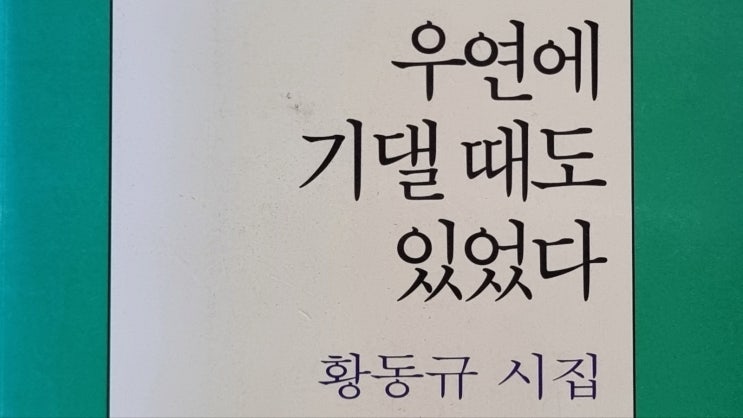 우연에
기댈 때도
있었다
황동규 시집